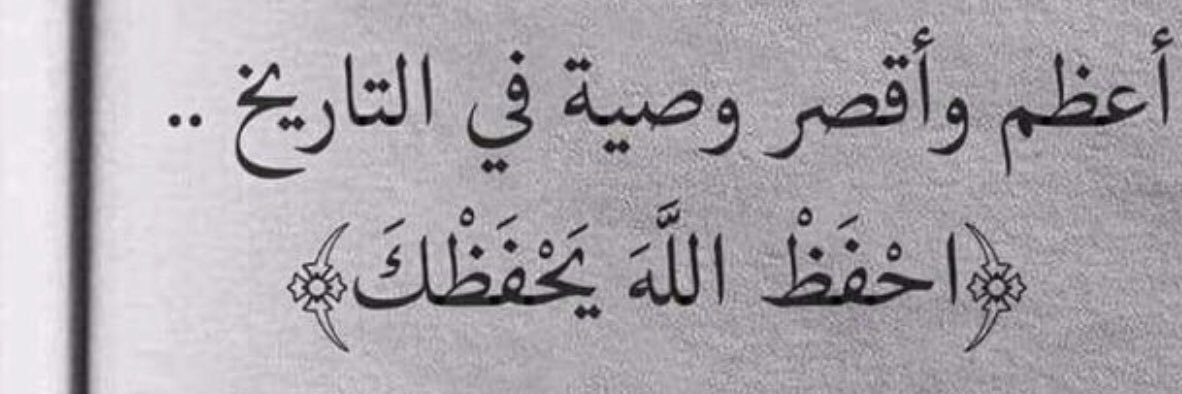 أعظم وأقصر وصية في التاريخ ..
﴿احْفَظْ اللَّهَ يَحْفَظْكَ﴾